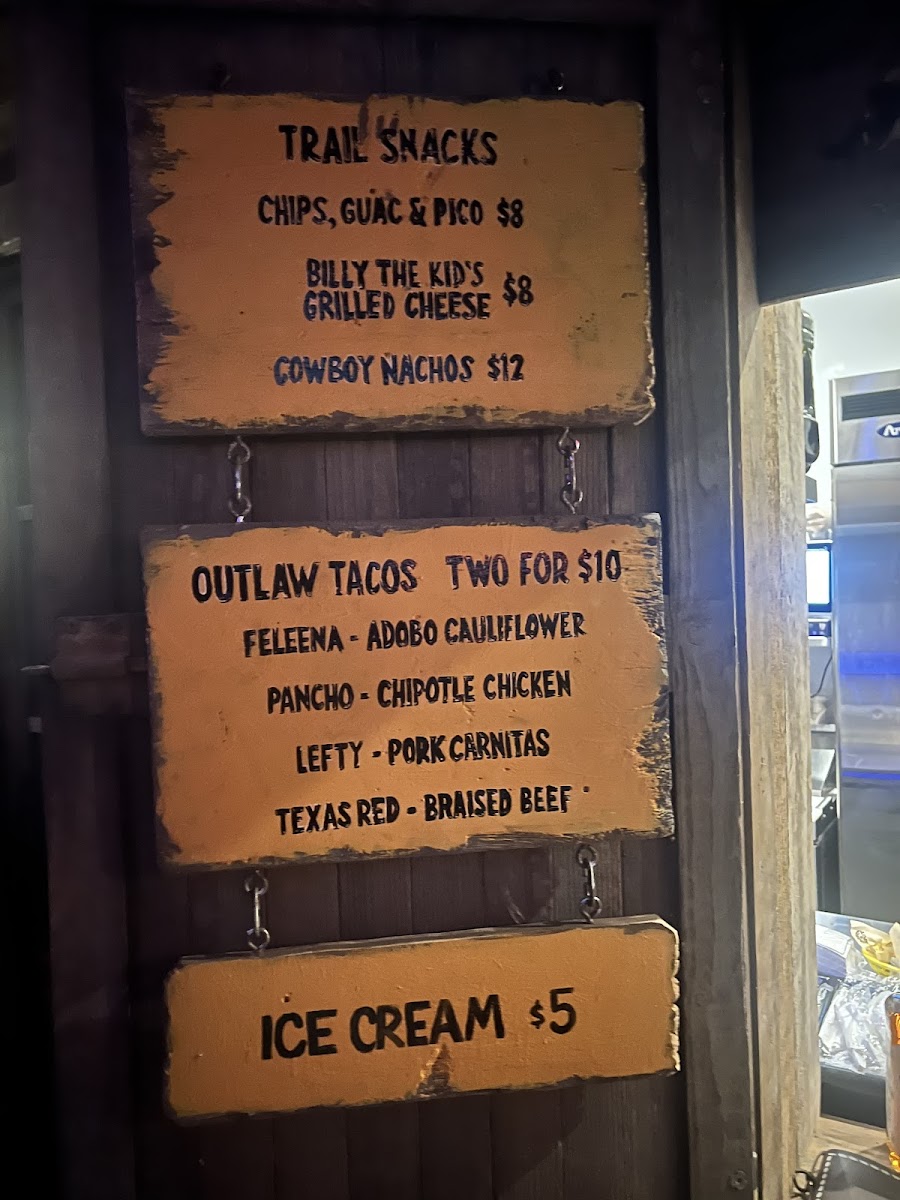 TRAIL SNACKS
CHIPS, GUAC & PICO $8
BILLY THE KID'S
GRILLED CHEESE $8
COWBOY NACHOS $12
OUTLAW TACOS TWO FOR $10
FELEENA - ADOBO CAULIFLOWER
PANCHO - CHIPOTLE CHICKEN
LEFTY - PORK CARNITAS
TEXAS RED - BRAISED BEEF
ICE CREAM $5